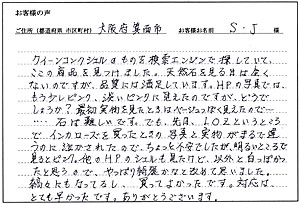 お客様の声
ご住所(都道府県 市区町村) 大阪府箕面市 お客様お名前 S・T 様
クイーンコンクシェルのものを検索エンジンで探していて、
この商品を見つけました。天然石を見るのは全く
ないのですが、品質には満足しています。HPの写真では、
もう少しピンク、淡いピンクに見えたのですが、どうで
しょうか?最初実物を見たときはベージュぽく見えたので…
石は難しいです。でも、先日、10Zというところ
でインカローズを買ったときの写真と実物がまるで違
うのに泣かされたので、ちょっと不安でしたが、明るいところで
見るとピンク。他のHPのシェルも見たけど、以外と白っぽかっ
たと思うので、やっぱり綺麗かなと改めて思いました。
縞々ももってるし、買ってよかったです。対応は、
とても早かったです。ありがとうございます。